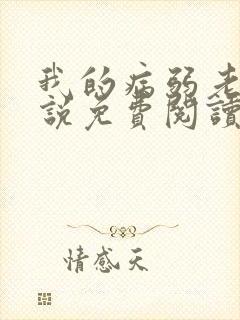 我的病弱老
說免費閱讀
情感天